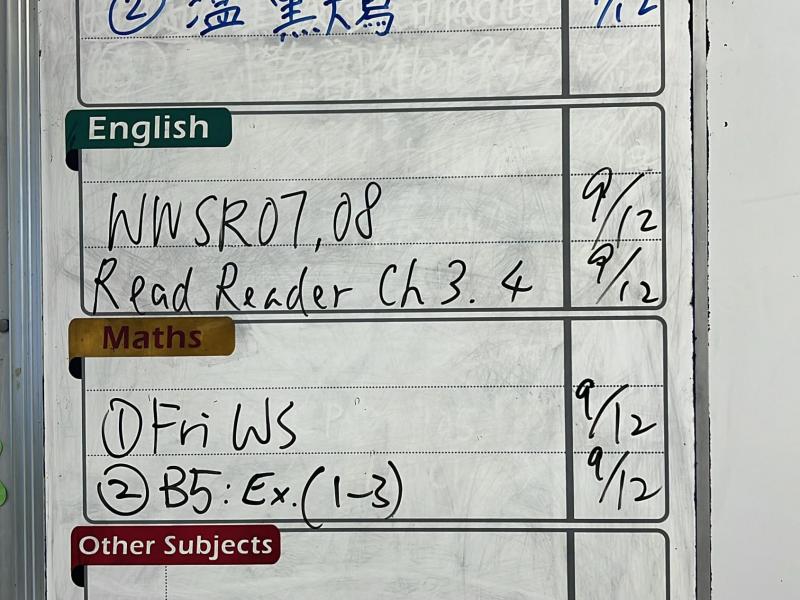 ② 溫 黑犬鳥 9/12
English
WWSR07,08 9/12
Read Reader Ch 3. 4 9/12
Maths
① Fri WS 9/12
② B5: Ex.(1-3) 9/12
Other Subjects